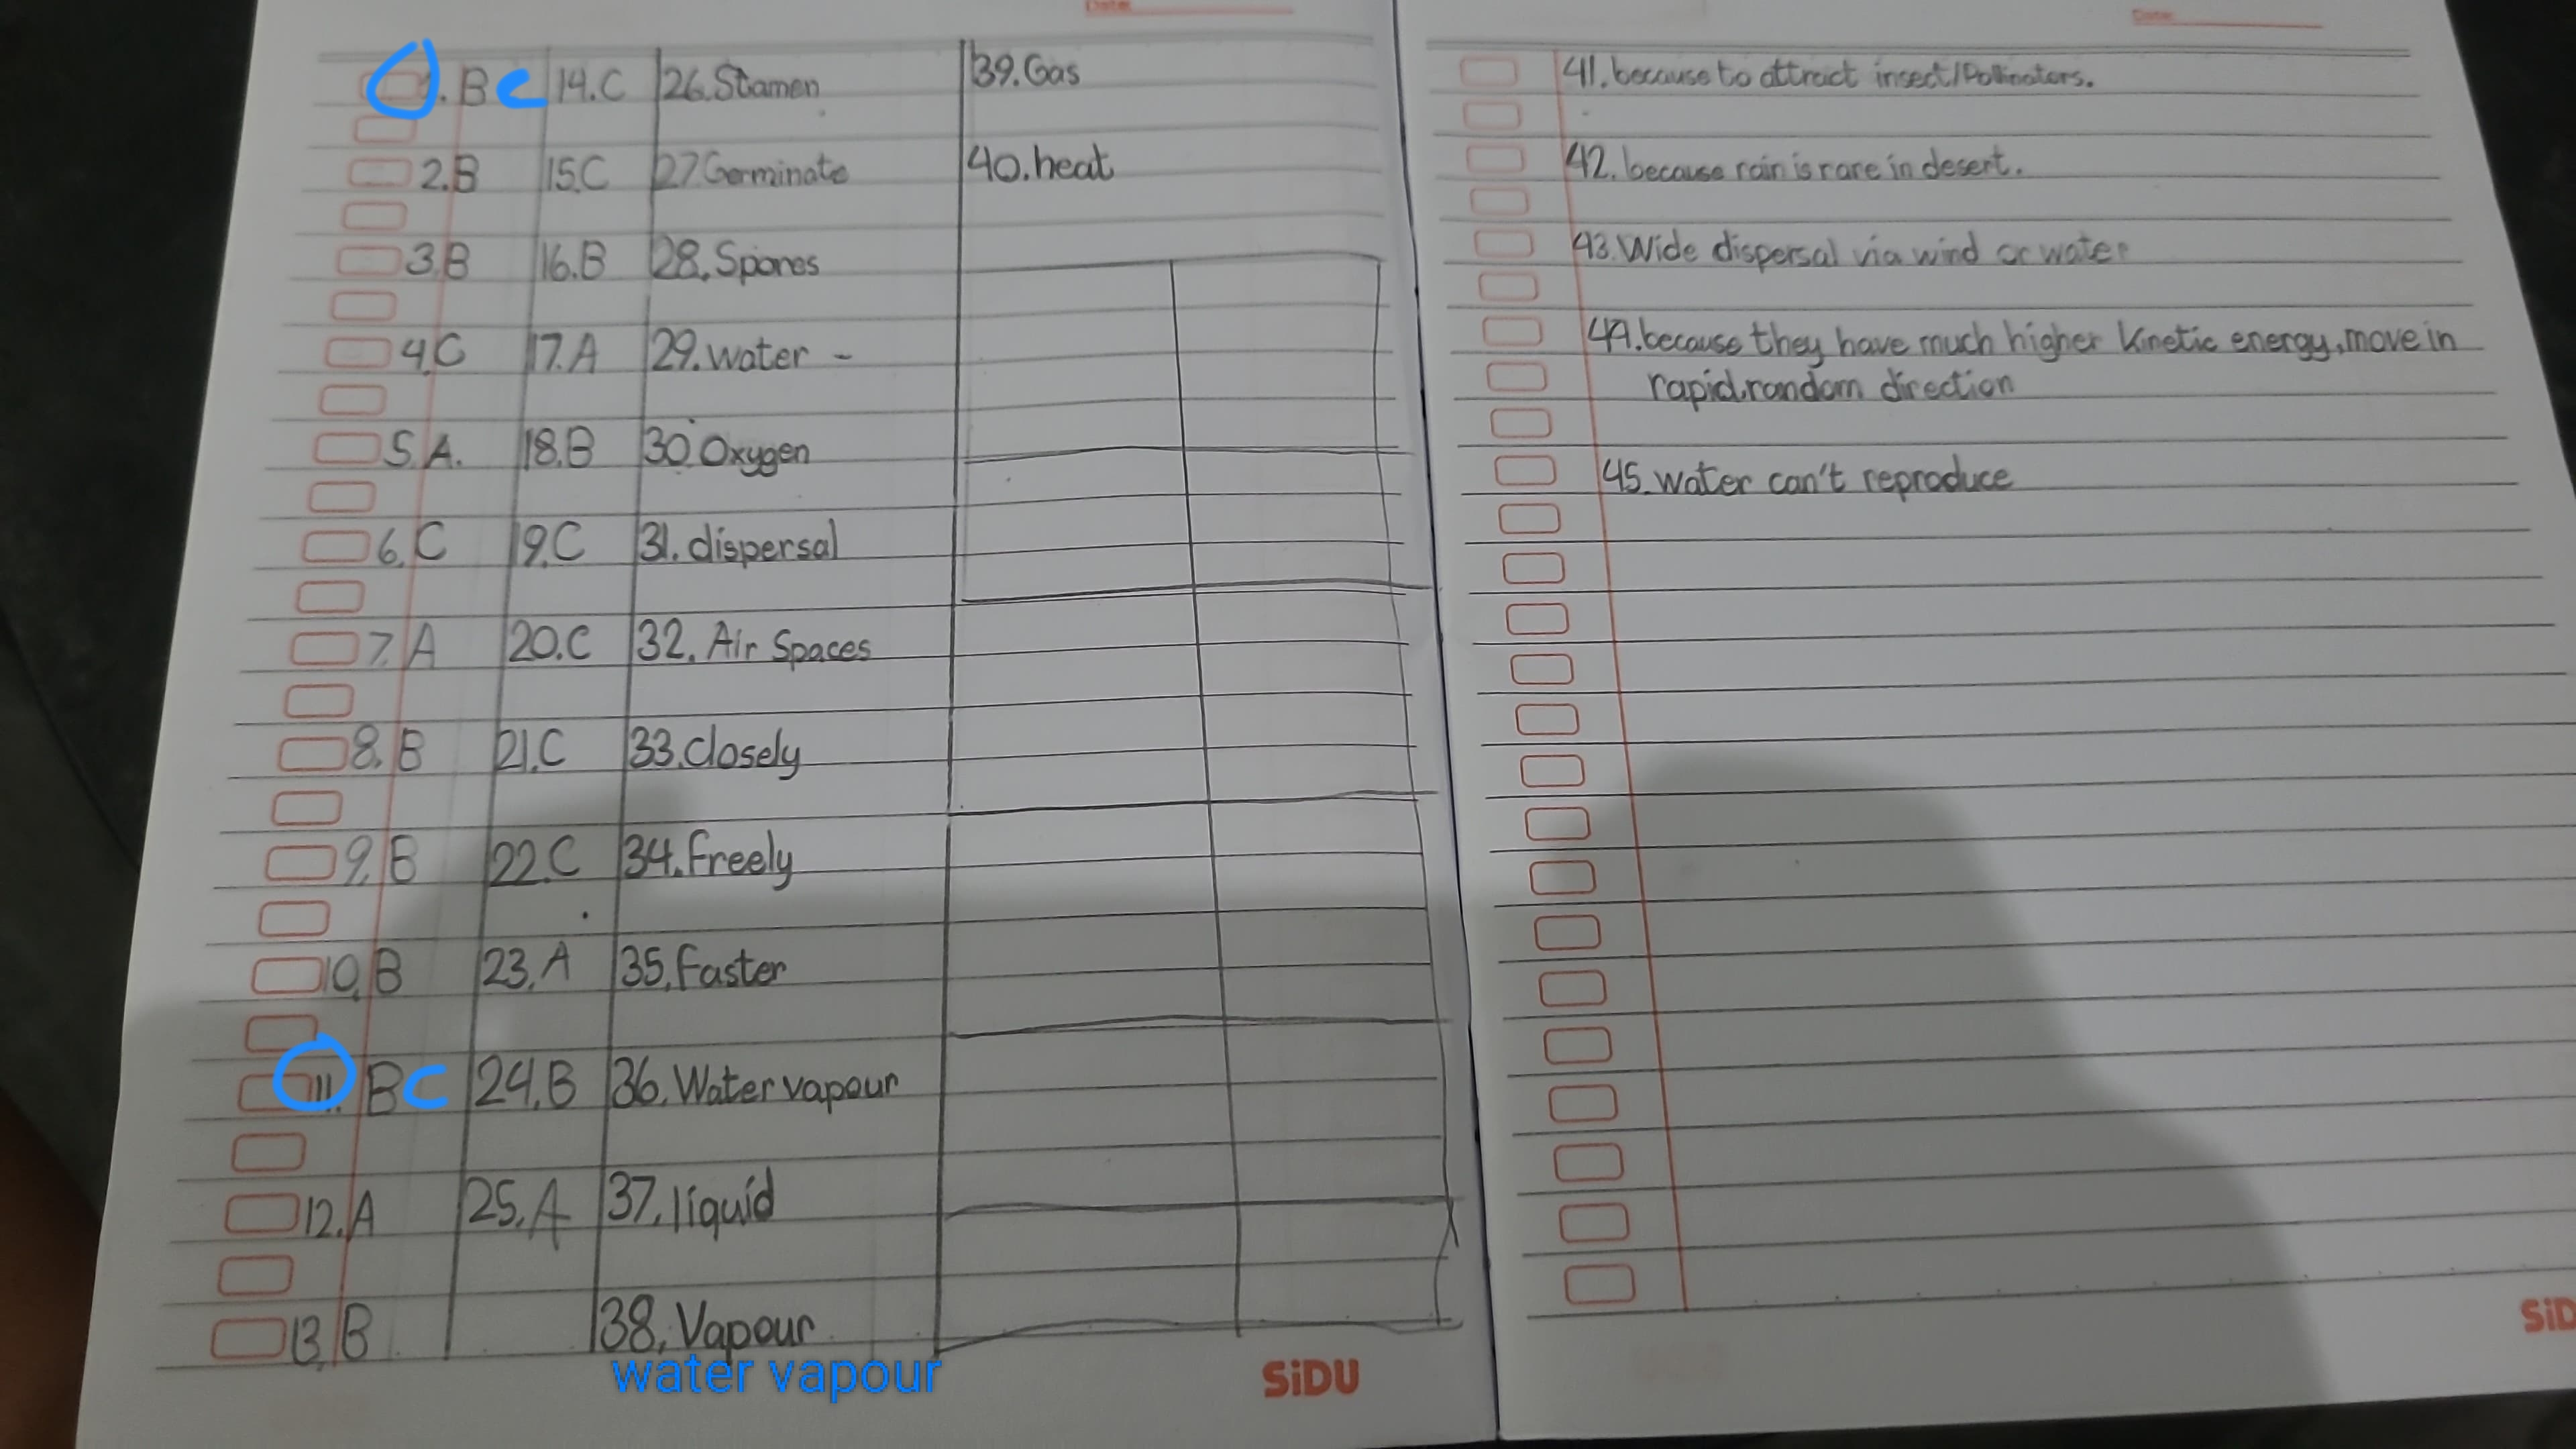 Date:
1. B C
14.C
26.Stamen
39.Gas
2.B
15.C
27.Germinate
40.heat
3.B
16.B
28.Spores
4.C
17.A
29.water -
5.A.
18.B
30.Oxygen
6.C
19.C
31.dispersal
7.A
20.C
32. Air Spaces
8.B
21.C
33.Closely
9.B
22.C
34.Freely
10.B
23.A
35.Faster
11. B C
24.B
36.Water vapour
12.A
25.A
37.liquid
13.B
38.Vapour
water vapour
SiDU
Date:
41.because to attract insect/Pollinators.
42. because rain is rare in desert.
43.Wide dispersal via wind or water
44.because they have much higher Kinetic energy, move in
rapid, random direction
45. water can't reproduce
SiD